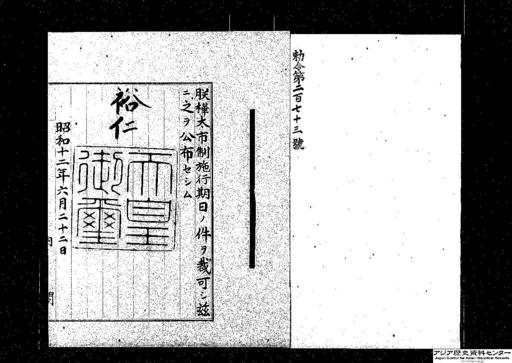 勅令第二百七十三號
朕樺太市制施行期日ノ件ヲ裁可シ玆
ニ之ヲ公布セシム
裕仁
天皇御璽
昭和十二年六月二十二日
アジア歴史資料センター
Japan Center for Asian Historical Records